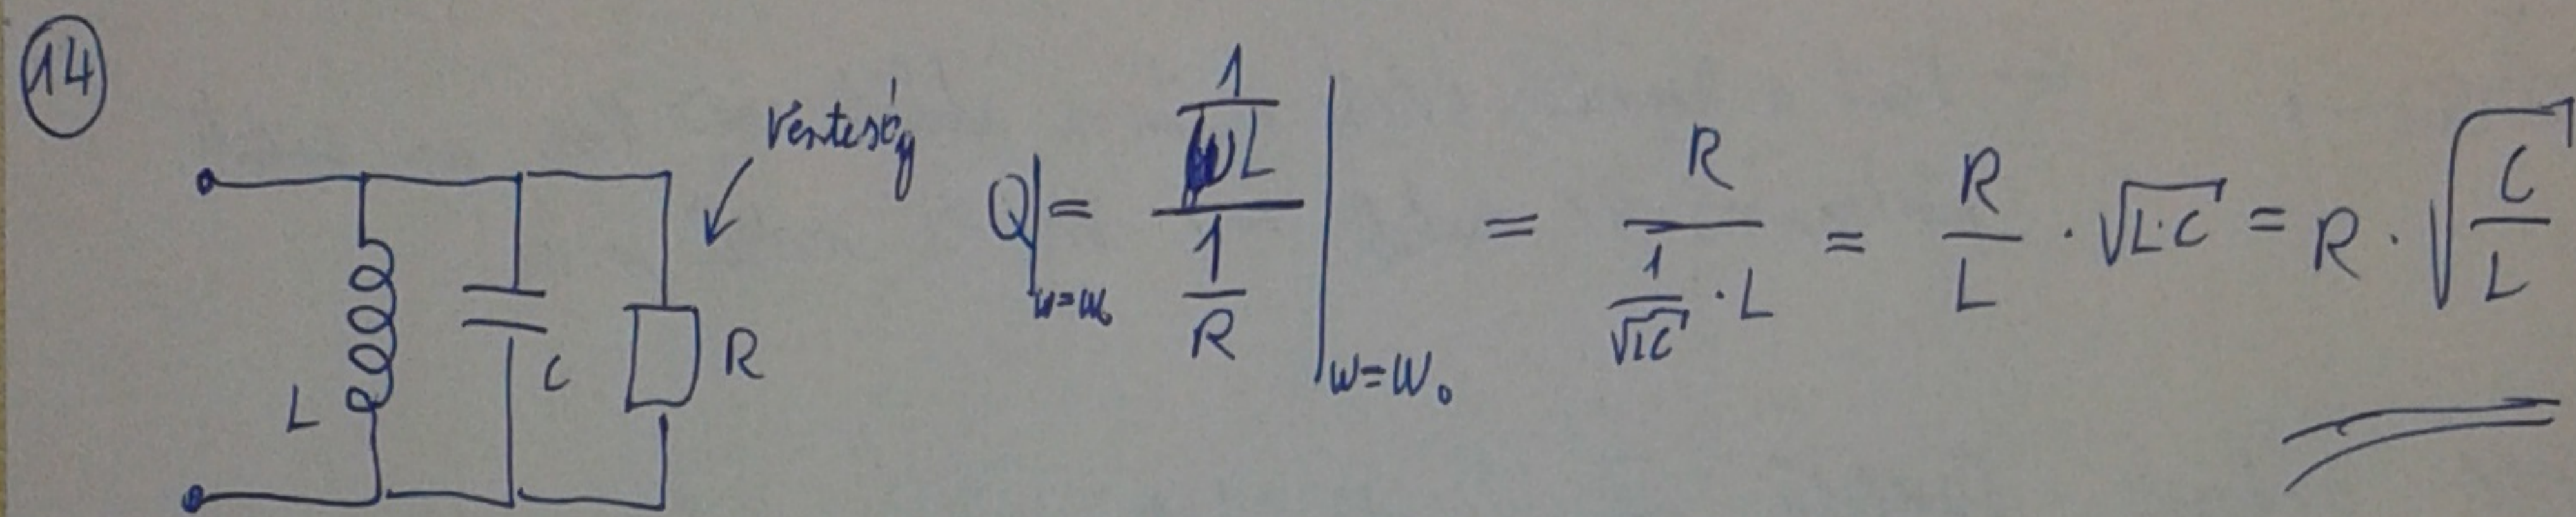 14
Veszteség
L
C
R
Q|ω=ω₀ = (1/(ωL))/(1/R) |ω=ω₀ = R/((1/√(LC))·L) = R/L · √(L·C) = R · √(C/L)